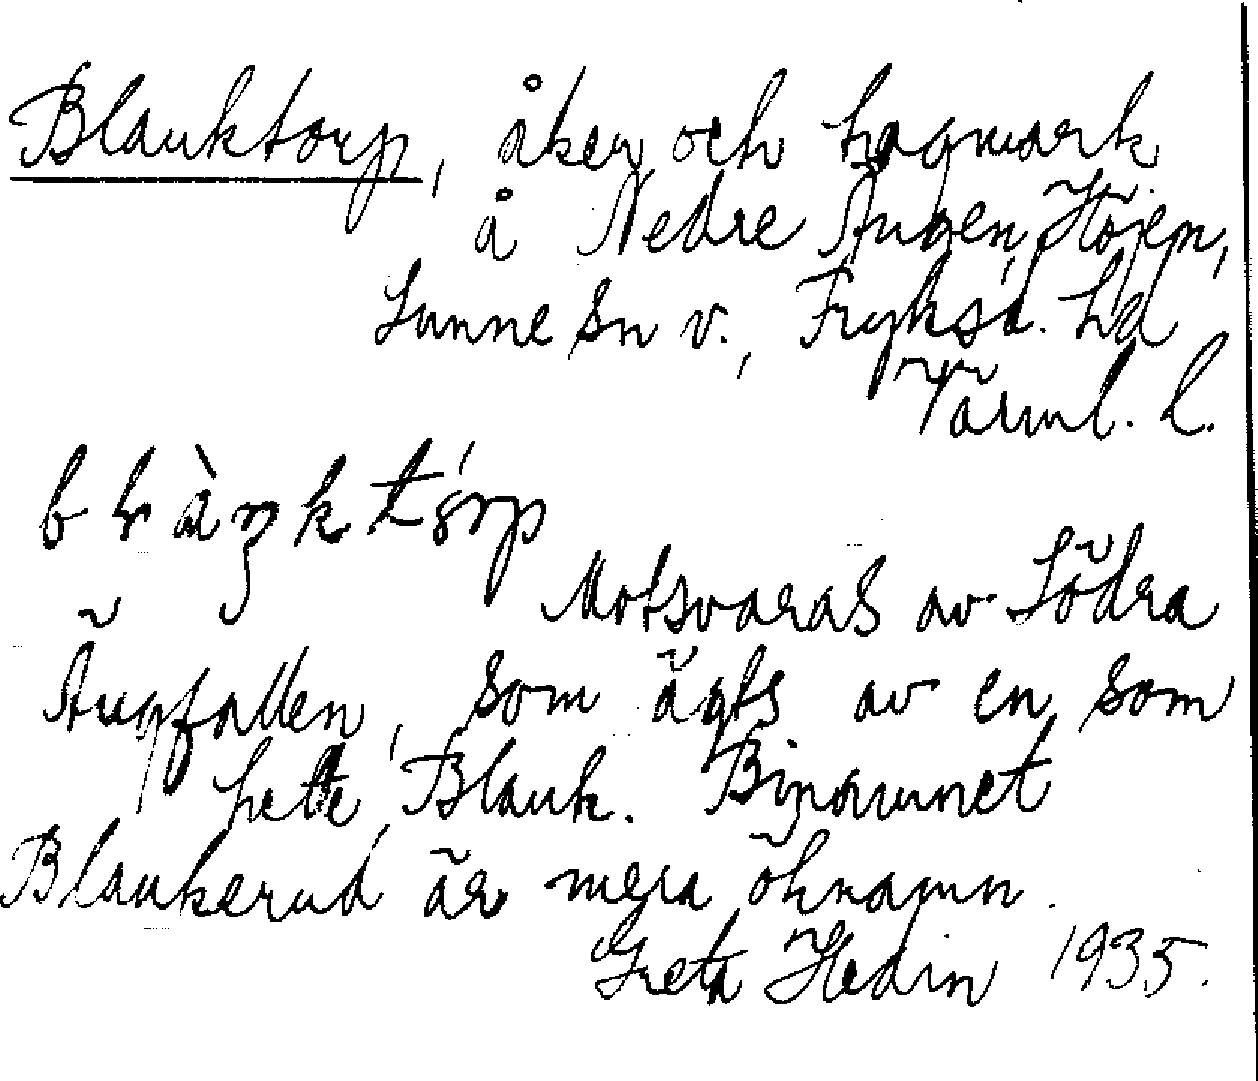 Blanktorp, åker och hagmark
å Nedre Ängen, Höjem,
Sunne sn v., Fryksd. hd
Värml. l.
Motsvaras av Södra
Ängfallen, som ägts av en som
hette Blank. Binamnet
Blankerud är mera öknamn.
Greta Hedin 1935.